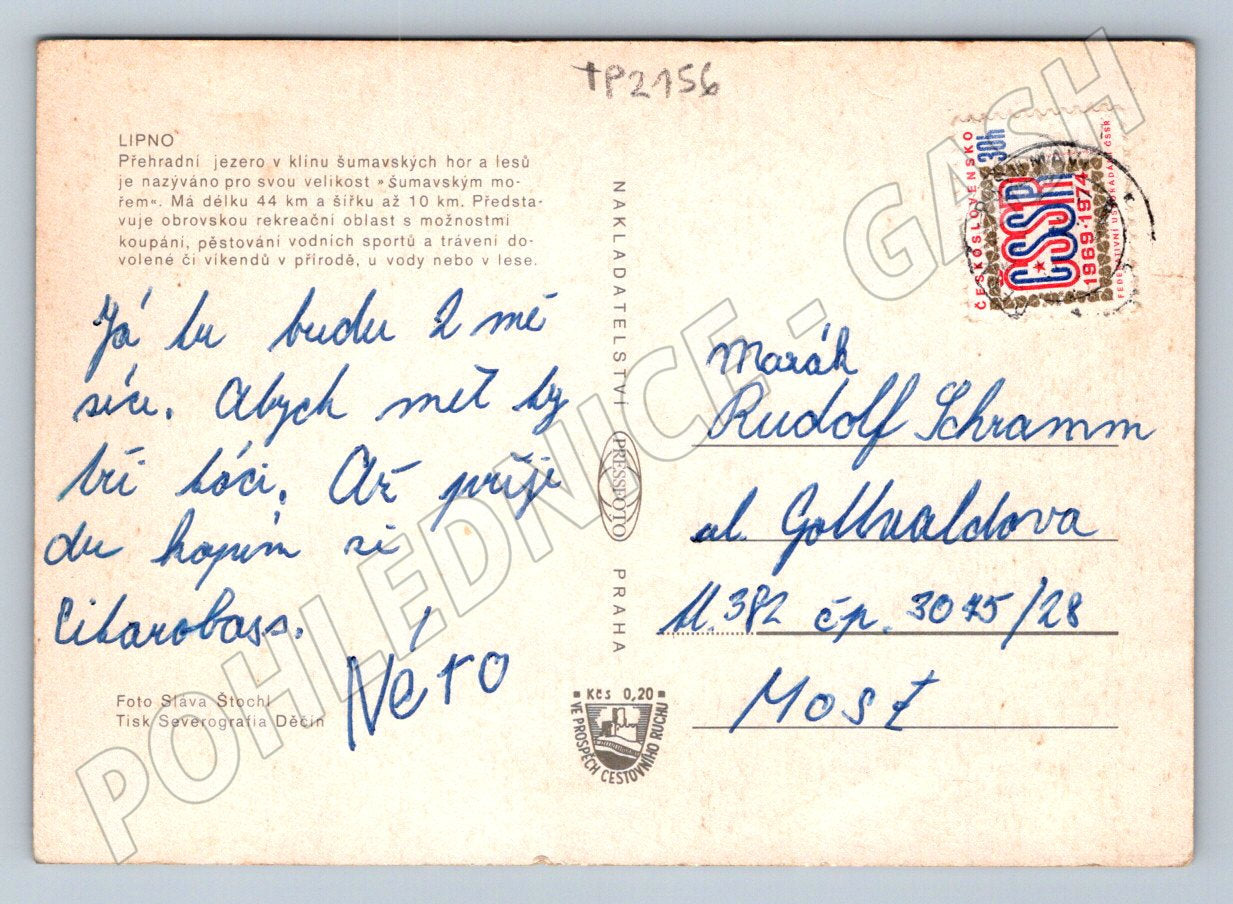 tP2156
LIPNO
Přehradní jezero v klínu šumavských hor a lesů
je nazýváno pro svou velikost »šumavským mo-
řem«. Má délku 44 km a šířku až 10 km. Předsta-
vuje obrovskou rekreační oblast s možnostmi
koupání, pěstování vodních sportů a trávení do-
volené či víkendů v přírodě, u vody nebo v lese.
Já tu budu 2 mě
síce. Abych měl ty
tři tóči. Až přije
du kopim si
Citarobass.
Néro
Foto Sláva Štochl
Tisk Severografia Děčín
NAKLADATELSTVÍ PRESSFOTO PRAHA
Kčs 0,20
VE PROSPĚCH CESTOVNÍHO RUCHU
ČESKOSLOVENSKO
30h
ČSSR
1969-1974
USPOŘÁDÁNÍ ČSSR
Marák
Rudolf Schramm
ul. Gottvaldova
bl. 382 čp. 3075/28
Most
POHLEDNICE - GASH